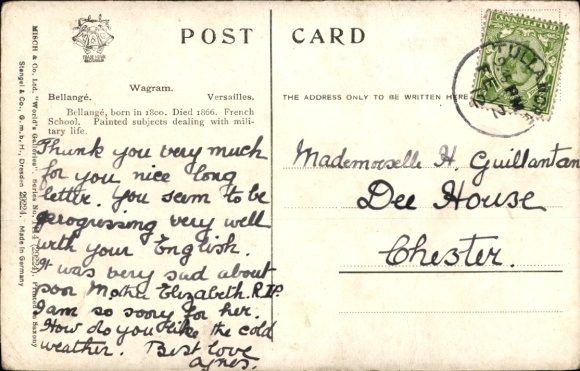 POST CARD
Wagram.
Bellangé. Versailles.
Bellangé, born in 1800. Died 1866. French
School. Painted subjects dealing with mili-
tary life.
THE ADDRESS ONLY TO BE WRITTEN HERE
MISCH & Co. Ltd. "World's Galleries" Series No. Printed in Saxony
Stengel & Co., G. m. b. H., Dresden 29224. Made in Germany
TULLAMORE
FE 12
Thank you very much
for you nice long
letter. You seem to be
progressing very well
with your English.
It was very sad about
poor Mother Elizabeth. R.I.P.
I am so sorry for her.
How do you like the cold
weather. Best love
Agnes.
Mademoiselle H. Guillantan
Dee House
Chester.